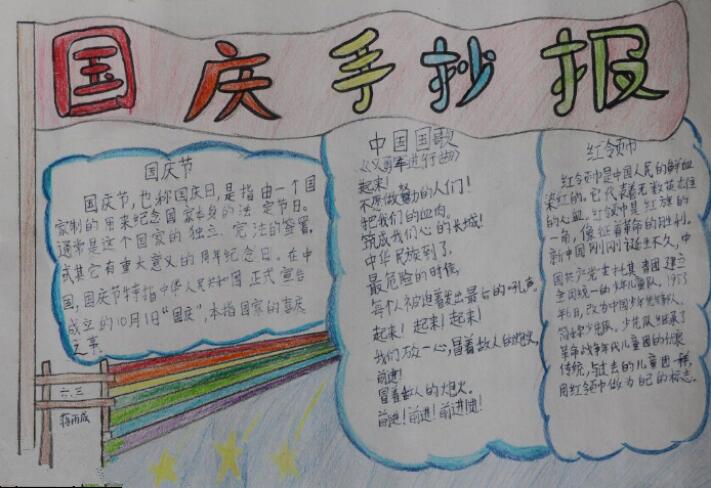 国庆手抄报
国庆节
国庆节,也称国庆日,是指由一个国
家制的用来纪念国家本身的法定节日。
通常是这个国家的独立、宪法的签署,
或其它有重大意义的周年纪念日。在中
国,国庆节特指中华人民共和国正式宣告
成立的10月1日“国庆”,本指国家的喜庆
之事。
六.三
中国国歌
《义勇军进行曲》
起来!
不愿做努力的人们!
把我们的血肉。
筑成我们心的长城!
中华民族到了,
最危险的时候,
每个人被迫着发出最后的吼声。
起来!起来!起来!
我们万众一心,冒着敌人的炮火,
前进!
冒着敌人的炮火。
前进!前进!前进!进!
红领巾
红领巾是中国人民的鲜血
染红的。它代表着无数英雄
的心血。红领巾是红旗的
一角,象征着革命的胜利。
新中国刚刚诞生不久,中
国共产党委托其青团建立
全国统一的少年儿童队,1953
年6月,改为中国少年先锋队,
简称少先队,少先队继承了
革命战争年代儿童团的优良
传统,与过去的儿童团一样,
用红领巾做为自己的标志。